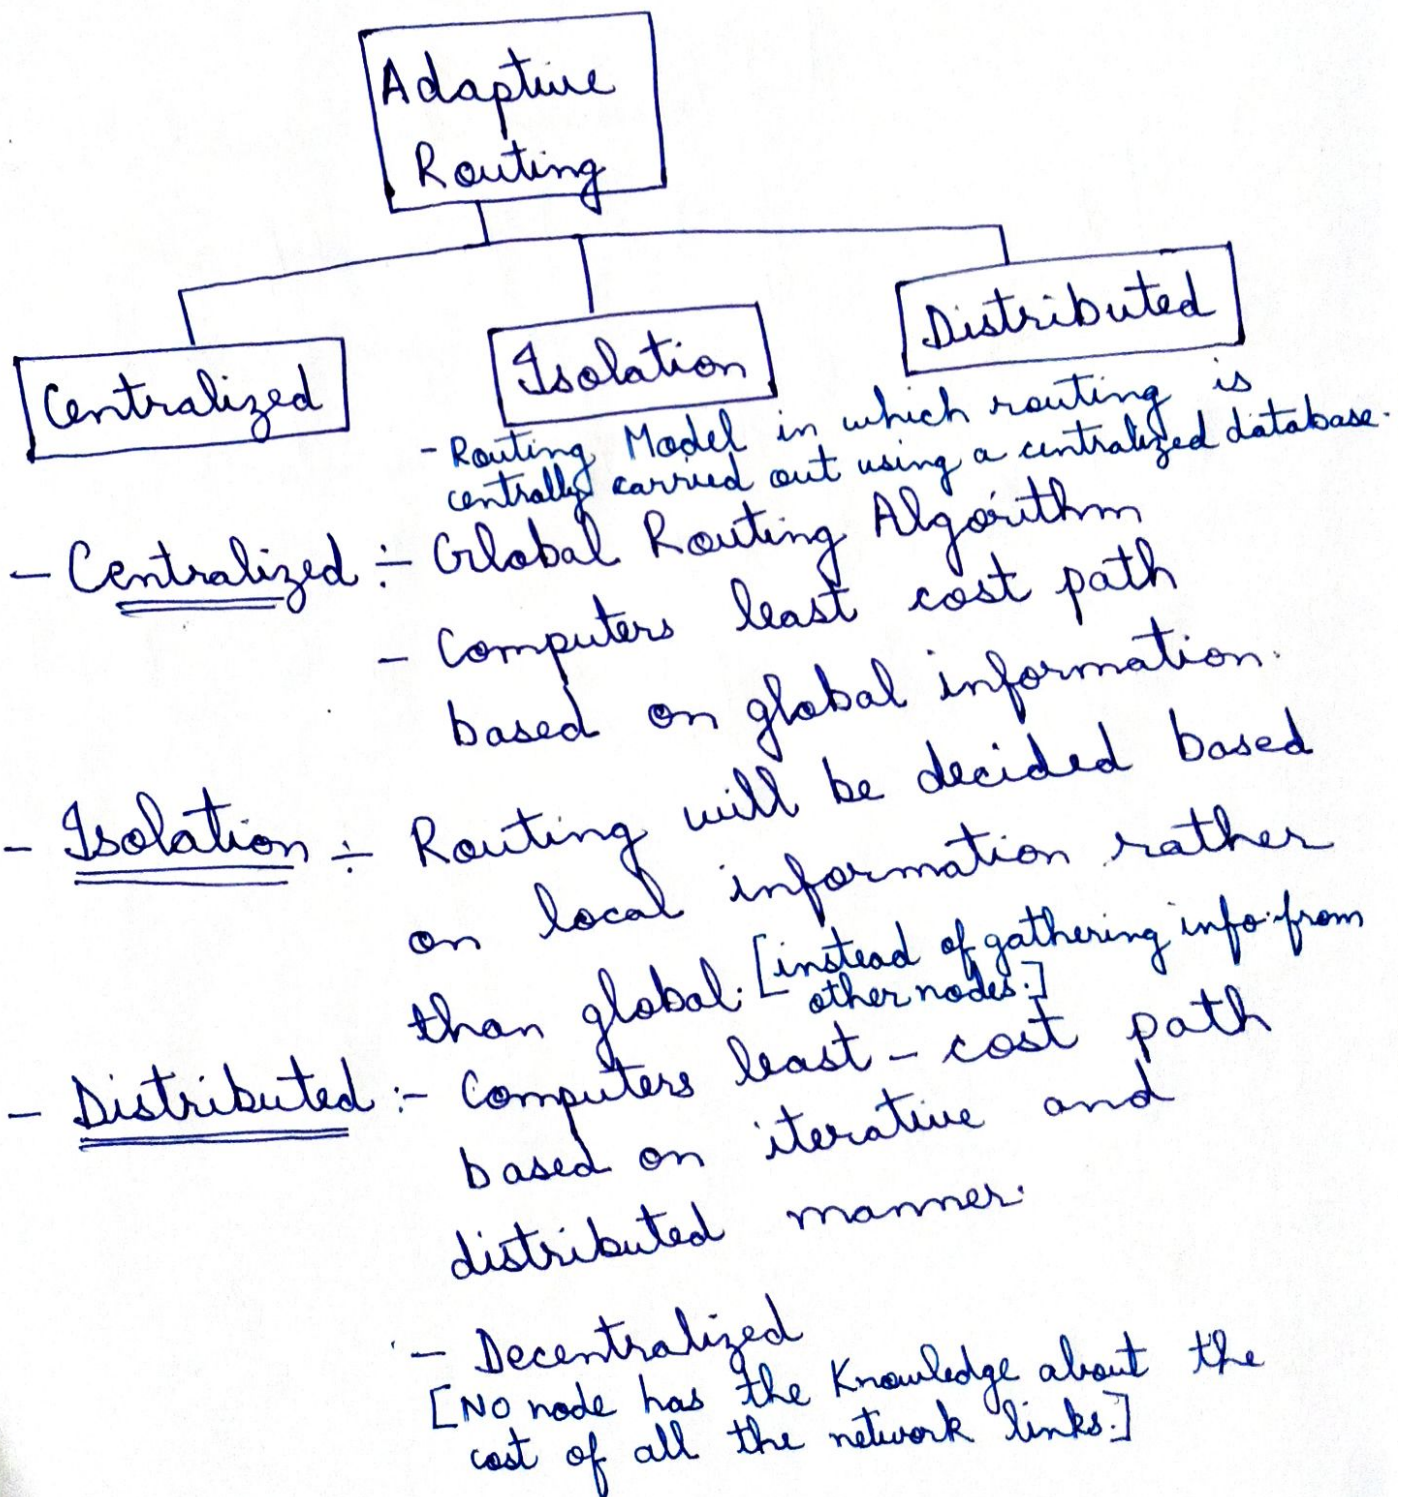 Adaptive
Routing
Centralized
Isolation
Distributed
- Routing Model in which routing is
centrally carried out using a centralized database.
- Centralized :- Global Routing Algorithm
- Computers least cost path
based on global information.
- Isolation :- Routing will be decided based
on local information rather
than global. [instead of gathering info. from
other nodes.]
- Distributed :- Computers least - cost path
based on iterative and
distributed manner.
- Decentralized
[NO node has the Knowledge about the
cost of all the network links.]